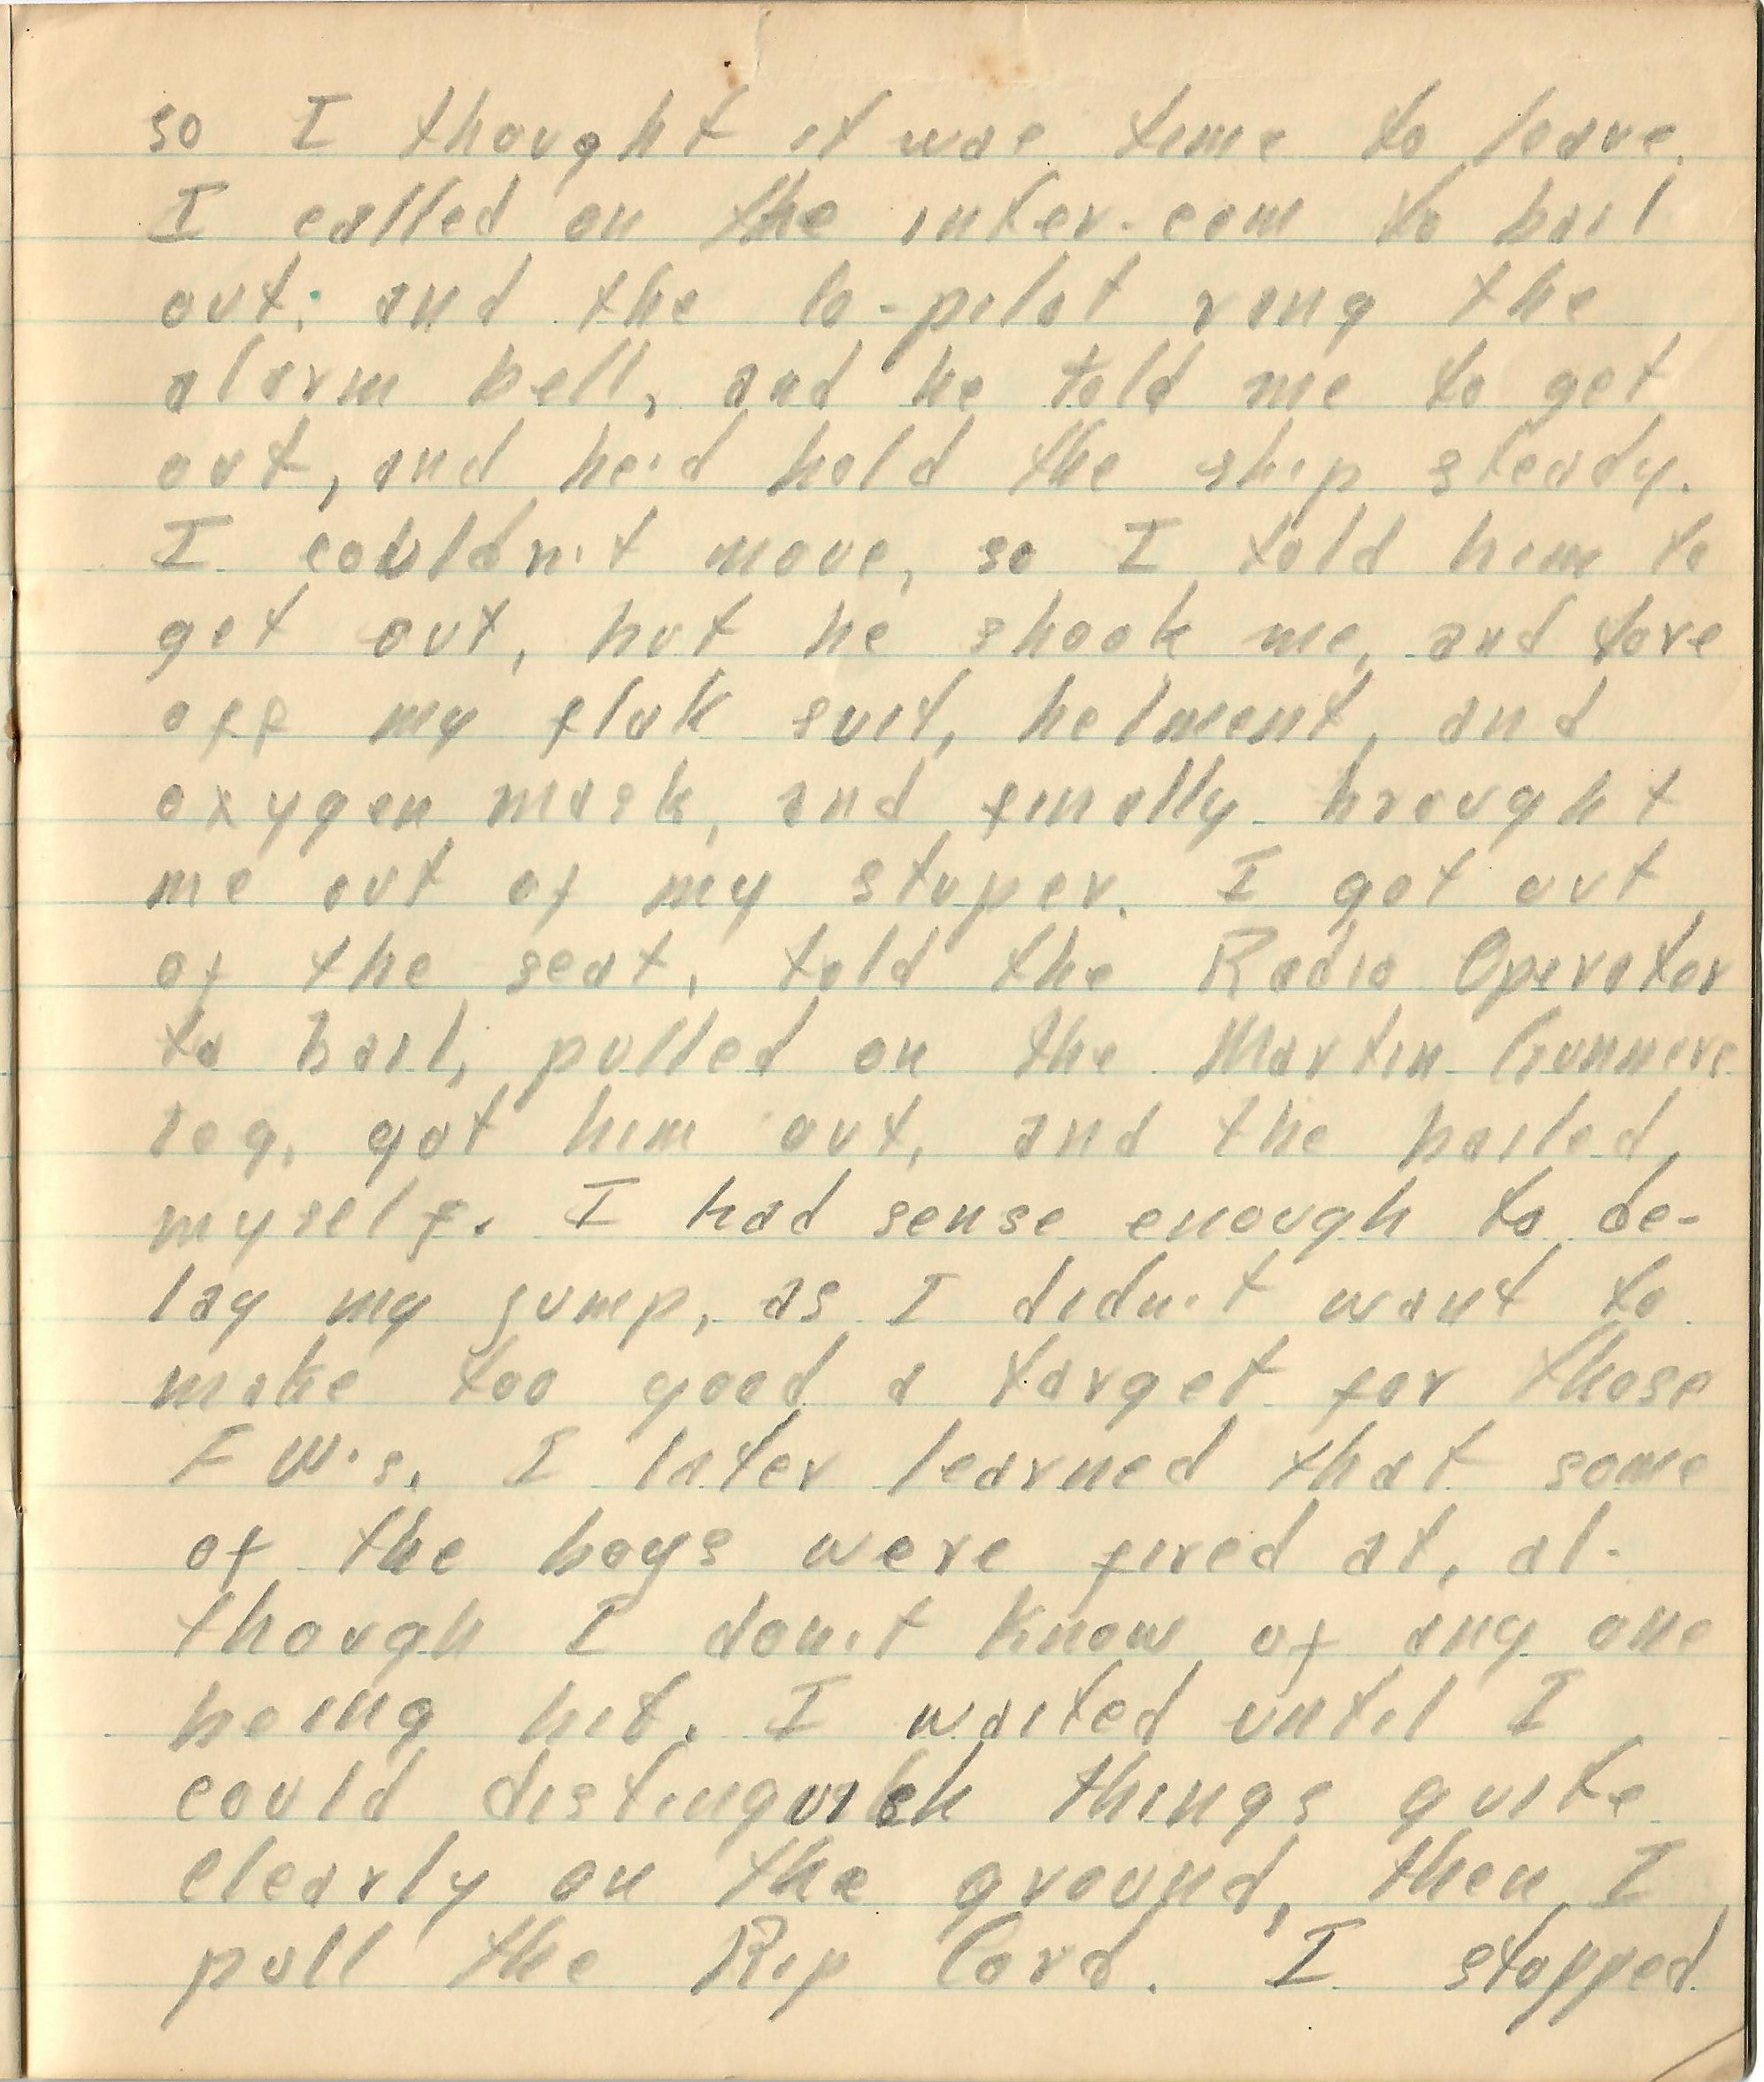 so I thought it was time to leave.
I called on the inter-com to bail
out; and the Co-pilot rang the
alarm bell, and he told me to get
out, and he'd hold the ship steady.
I couldn't move, so I told him to
get out, but he shook me, and tore
off my flak suit, helment, and
oxygen mask, and finally brought
me out of my stuper. I got out
of the seat, told the Radio Operator
to bail, pulled on the Martin Gunners
leg, got him out, and the bailed
myself. I had sense enough to de-
lay my jump, as I didn't want to
make too good a target for those
F W's. I later learned that some
of the boys were fired at, al-
though I don't know of any one
being hit. I waited until I
could distinguish things quite
clearly on the ground, then I
pull the Rip Cord. I stopped